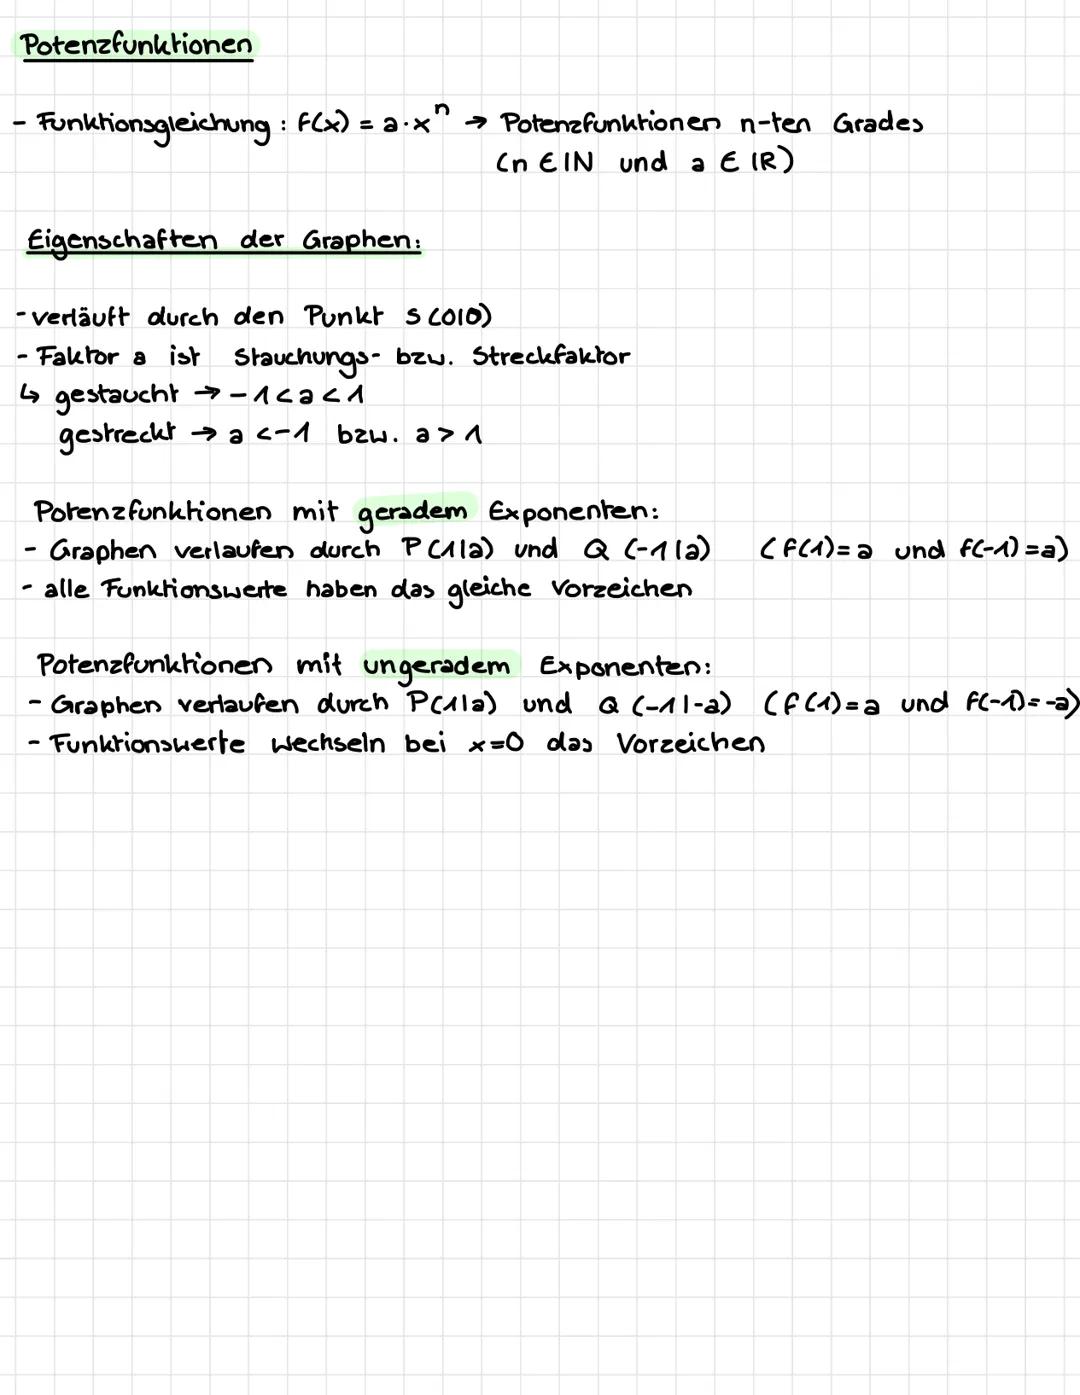 Potenzfunktionen
- Funktionsgleichung : f(x) = a·xⁿ → Potenzfunktionen n-ten Grades
(n ∈ ℕ und a ∈ ℝ)
Eigenschaften der Graphen:
- verläuft durch den Punkt S (0|0)
- Faktor a ist Stauchungs- bzw. Streckfaktor
↳ gestaucht → -1 < a < 1
gestreckt → a < -1 bzw. a > 1
Potenzfunktionen mit geradem Exponenten:
- Graphen verlaufen durch P (1|a) und Q (-1|a) (f(1) = a und f(-1) = a)
- alle Funktionswerte haben das gleiche Vorzeichen
Potenzfunktionen mit ungeradem Exponenten:
- Graphen verlaufen durch P(1|a) und Q (-1|-a) (f(1) = a und f(-1) = -a)
- Funktionswerte wechseln bei x=0 das Vorzeichen